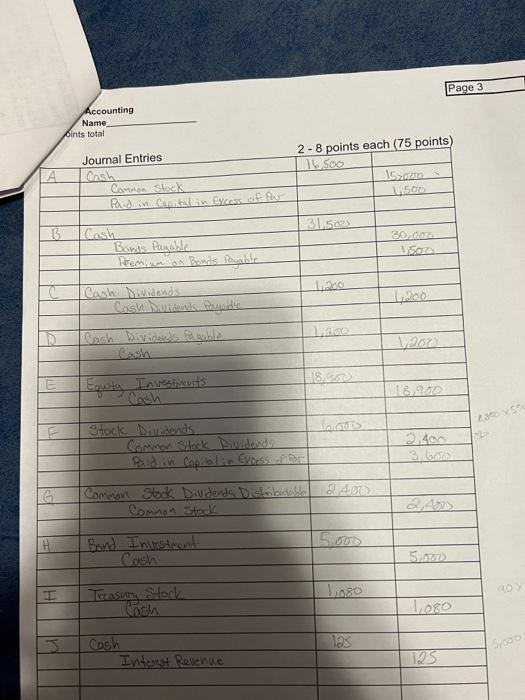 Page 3
Accounting
Name
oints total
Journal Entries 2 - 8 points each (75 points)
A Cash 16,500
Common Stock 15,000
Paid in Capital in Excess of Par 1,500
B Cash 31,500
Bonds Payable 30,000
Premium on Bonds Payable 1,500
C Cash Dividends 1,200
Cash Dividends Payable 1,200
D Cash Dividends Payable 1,200
Cash 1,200
E Equity Investments 18,900
Cash 18,900
F Stock Dividends 6,000
Common Stock Dividends 2,400
Paid in Capital in Excess of Par 3,600
G Common Stock Dividends Distributable 2,400
Common Stock 2,400
H Bond Investment 5,000
Cash 5,000
I Treasury Stock 1,080
Cash 1,080
90 X
J Cash 125
5,000
Interest Revenue 125